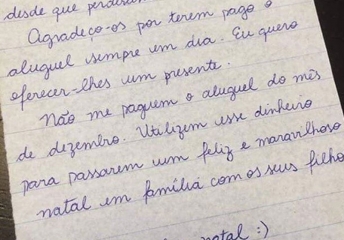 desde que
Agradeço-os por terem pago o
aluguel sempre em dia. Eu quero
oferecer-lhes um presente.
Não me paguem o aluguel do mês
de dezembro. Utilizem esse dinheiro
para passarem um feliz e maravilhoso
natal em família com os seus filho
natal :)